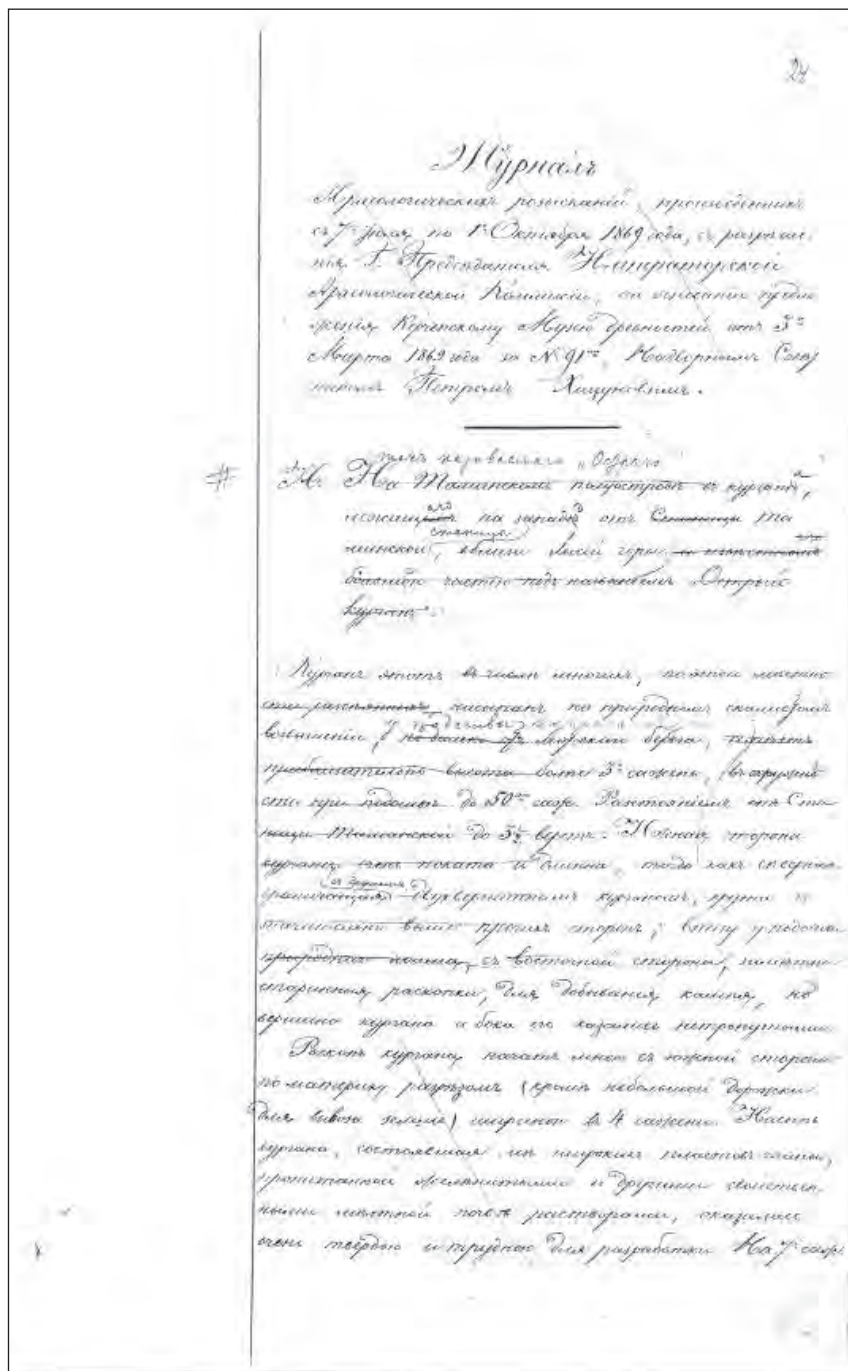 24
Журналъ
Археологическихъ розысканій, произведенныхъ
съ 7го по 1е Октября 1869 года, съ разрѣше-
нія Г. Предсѣдателя Императорской
Археологической Коммисіи, на основаніи предло-
женія Керченскому Музею древностей отъ 5го
Марта 1869 года за № 91мъ, Надворнымъ Совѣт-
никомъ Петромъ Хицуновымъ.
такъ называемаго „Остраго
# На Таманскомъ полуостровѣ въ курганѣ,
лежащаго на западъ отъ Станицы Та-
станицы
манской, вблизи Лысой горы
большею частію подъ названіемъ Острый
курганъ.
Курганъ этотъ въ числѣ многихъ, по этой мѣстно-
сти насыпанъ на природномъ скалистомъ
возвышеніи, у морскаго берега,
приблизительно высоты болѣе 5 сажень, въ окружно-
сти при подошвѣ до 50 саж. Разстояніемъ отъ Ста-
ницы Таманской до 5½ верстъ. Южная сторона
кургана поката и длинна, тогда какъ сѣверная
курганомъ, крута и
значительно выше прочихъ сторонъ; внизу у подошвы
съ восточной стороны, замѣтны
старинныя раскопки, для добыванія камня, но
вершина кургана и бока его казались нетронутыми.
Раскопъ кургана начатъ мною съ южной стороны
по материку разрѣзомъ (кромѣ небольшой дорожки
для вывоза земли) шириною въ 4 сажени. Насыпь
кургана, состоявшая изъ широкихъ пластовъ глины,
пропитанной и другими свойствен-
ными мѣстной почвѣ растворами, оказалась
очень твердою и трудною для разработки. На 7 саж.